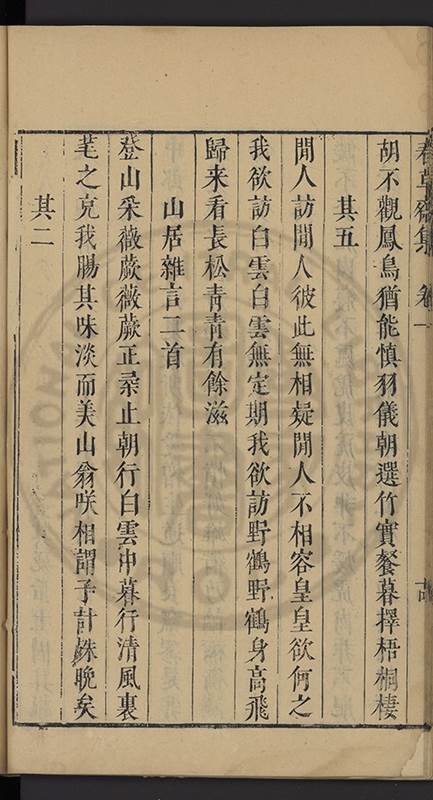 春草齋集 卷一
胡不觀鳳鳥猶能慎羽儀朝選竹實餐暮擇梧桐棲
其五
閒人訪閒人彼此無相疑閒人不相容皇皇欲何之
我欲訪白雲白雲無定期我欲訪野鶴野鶴身高飛
歸來看長松青青有餘滋
山居雜言二首
登山采薇蕨薇蕨正柔止朝行白雲中暮行清風裏
芼之充我腸其味淡而美山翁咲相謂子計殊晚矣
其二